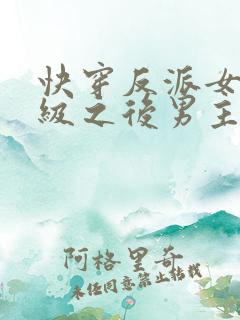 快穿反派女
级之後男主
阿格里奇
未经同意禁止转载